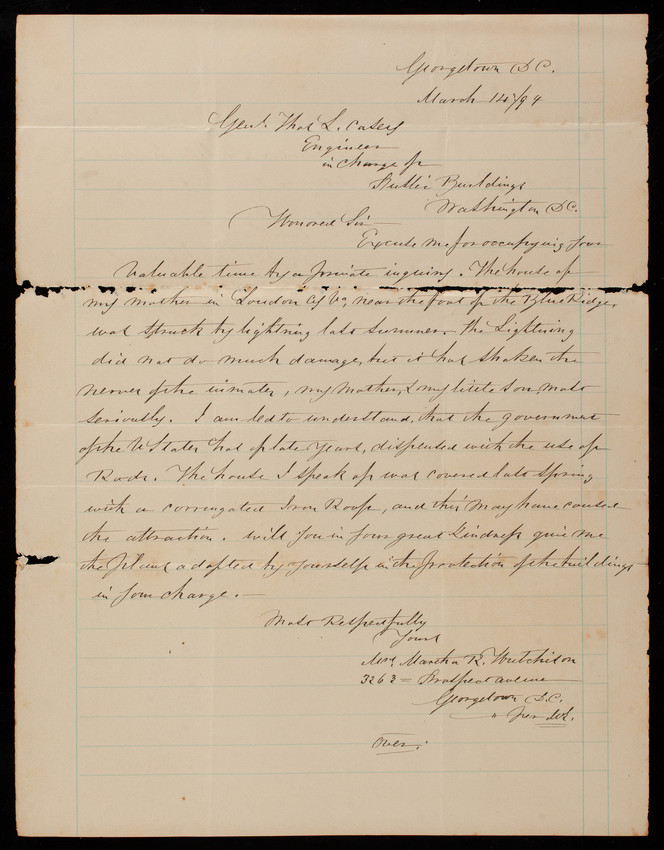 Georgetown D.C.
March 14th/94
Genl. Thos L. Casey
Engineer
in Charge of
Public Buildings
Washington D.C.
Honored Sir
Excuse me for occupying your
valuable time by a private inquiry. The house of
my mother in Loudon Cy Va, near the foot of the Blue Ridge,
was struck by lightning last summer. The Lightning
did not do much damage, but it has shaken the
nerves of the inmates, my mother, & my little son, most
seriously. I am led to understand, that the government
of the U States has of late years, dispensed with the use of
Rods. The house I speak of was covered last spring
with a corrugated Iron Roof, and this may have caused
the attraction. Will you in your great kindness give me
the plans adopted by yourself in the protection of the buildings
in your charge.—
Most Respectfully
Yours
Mrs. Martha R. Hutchison
3263 = Prospect avenue
Georgetown D.C.
Over.